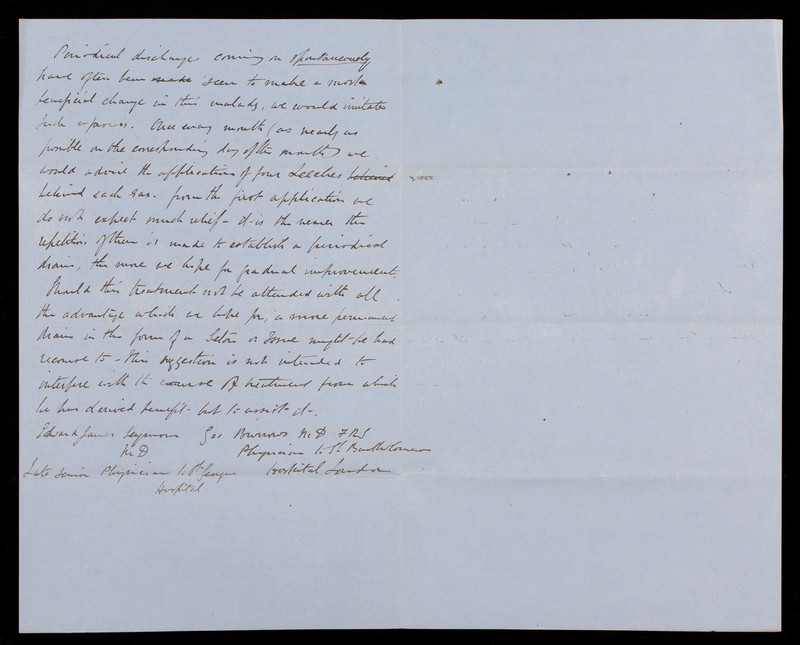 Periodical discharges coming on spontaneously
have often been made seen to make a most
beneficial change in this malady, we would imitate
such a process. Once every month (as nearly as
possible on the corresponding day of the month) we
would advise the application of four Leeches behind
behind each ear. from the first application we
do not expect much relief - it is the nearer the
repetition of them is made to establish a periodical
drain, the more we hope for gradual improvement.
Should this treatment not be attended with all
the advantage which we hope for, a more permanent
drain in the form of a Seton or Issue might be had
recourse to - this suggestion is not intended to
interfere with the course of treatment from which
he has derived benefit - but to assist it -.
Edward James Seymour Geo Burrows M.D FRS
M.D Physician to St Bartholomews
Late Senior Physician to St Georges Hospital London
Hospital